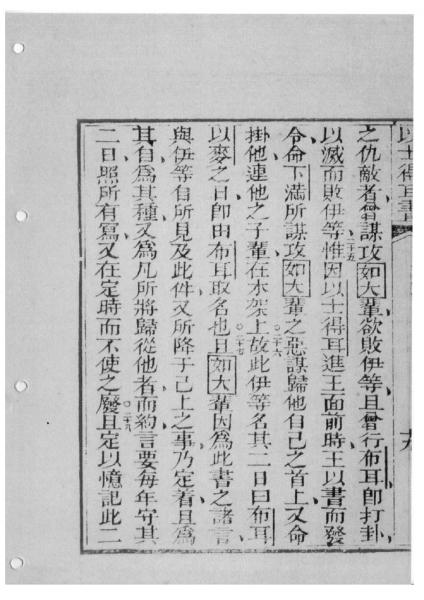 以士得耳書
之仇敵者曾謀攻如大輩欲敗伊等且曾行布耳即打卦
以滅而敗伊等○二十五惟因以士得耳進王面前時王以書而發
令命下滿所謀攻如大輩之惡謀歸他自己之首上又命
掛他連他之子輩在木架上○二十六故此伊等名其二日曰布耳
以麥之日即由布耳取名也○二十七且如大輩因為此書之諸言
與伊等自所見及此件又所降于己上之事乃定着且為
其自為其種又為凡所將歸從他者而約言要每年守其
二日照所有寫又在定時而不使之廢○二十八且定以憶記此二